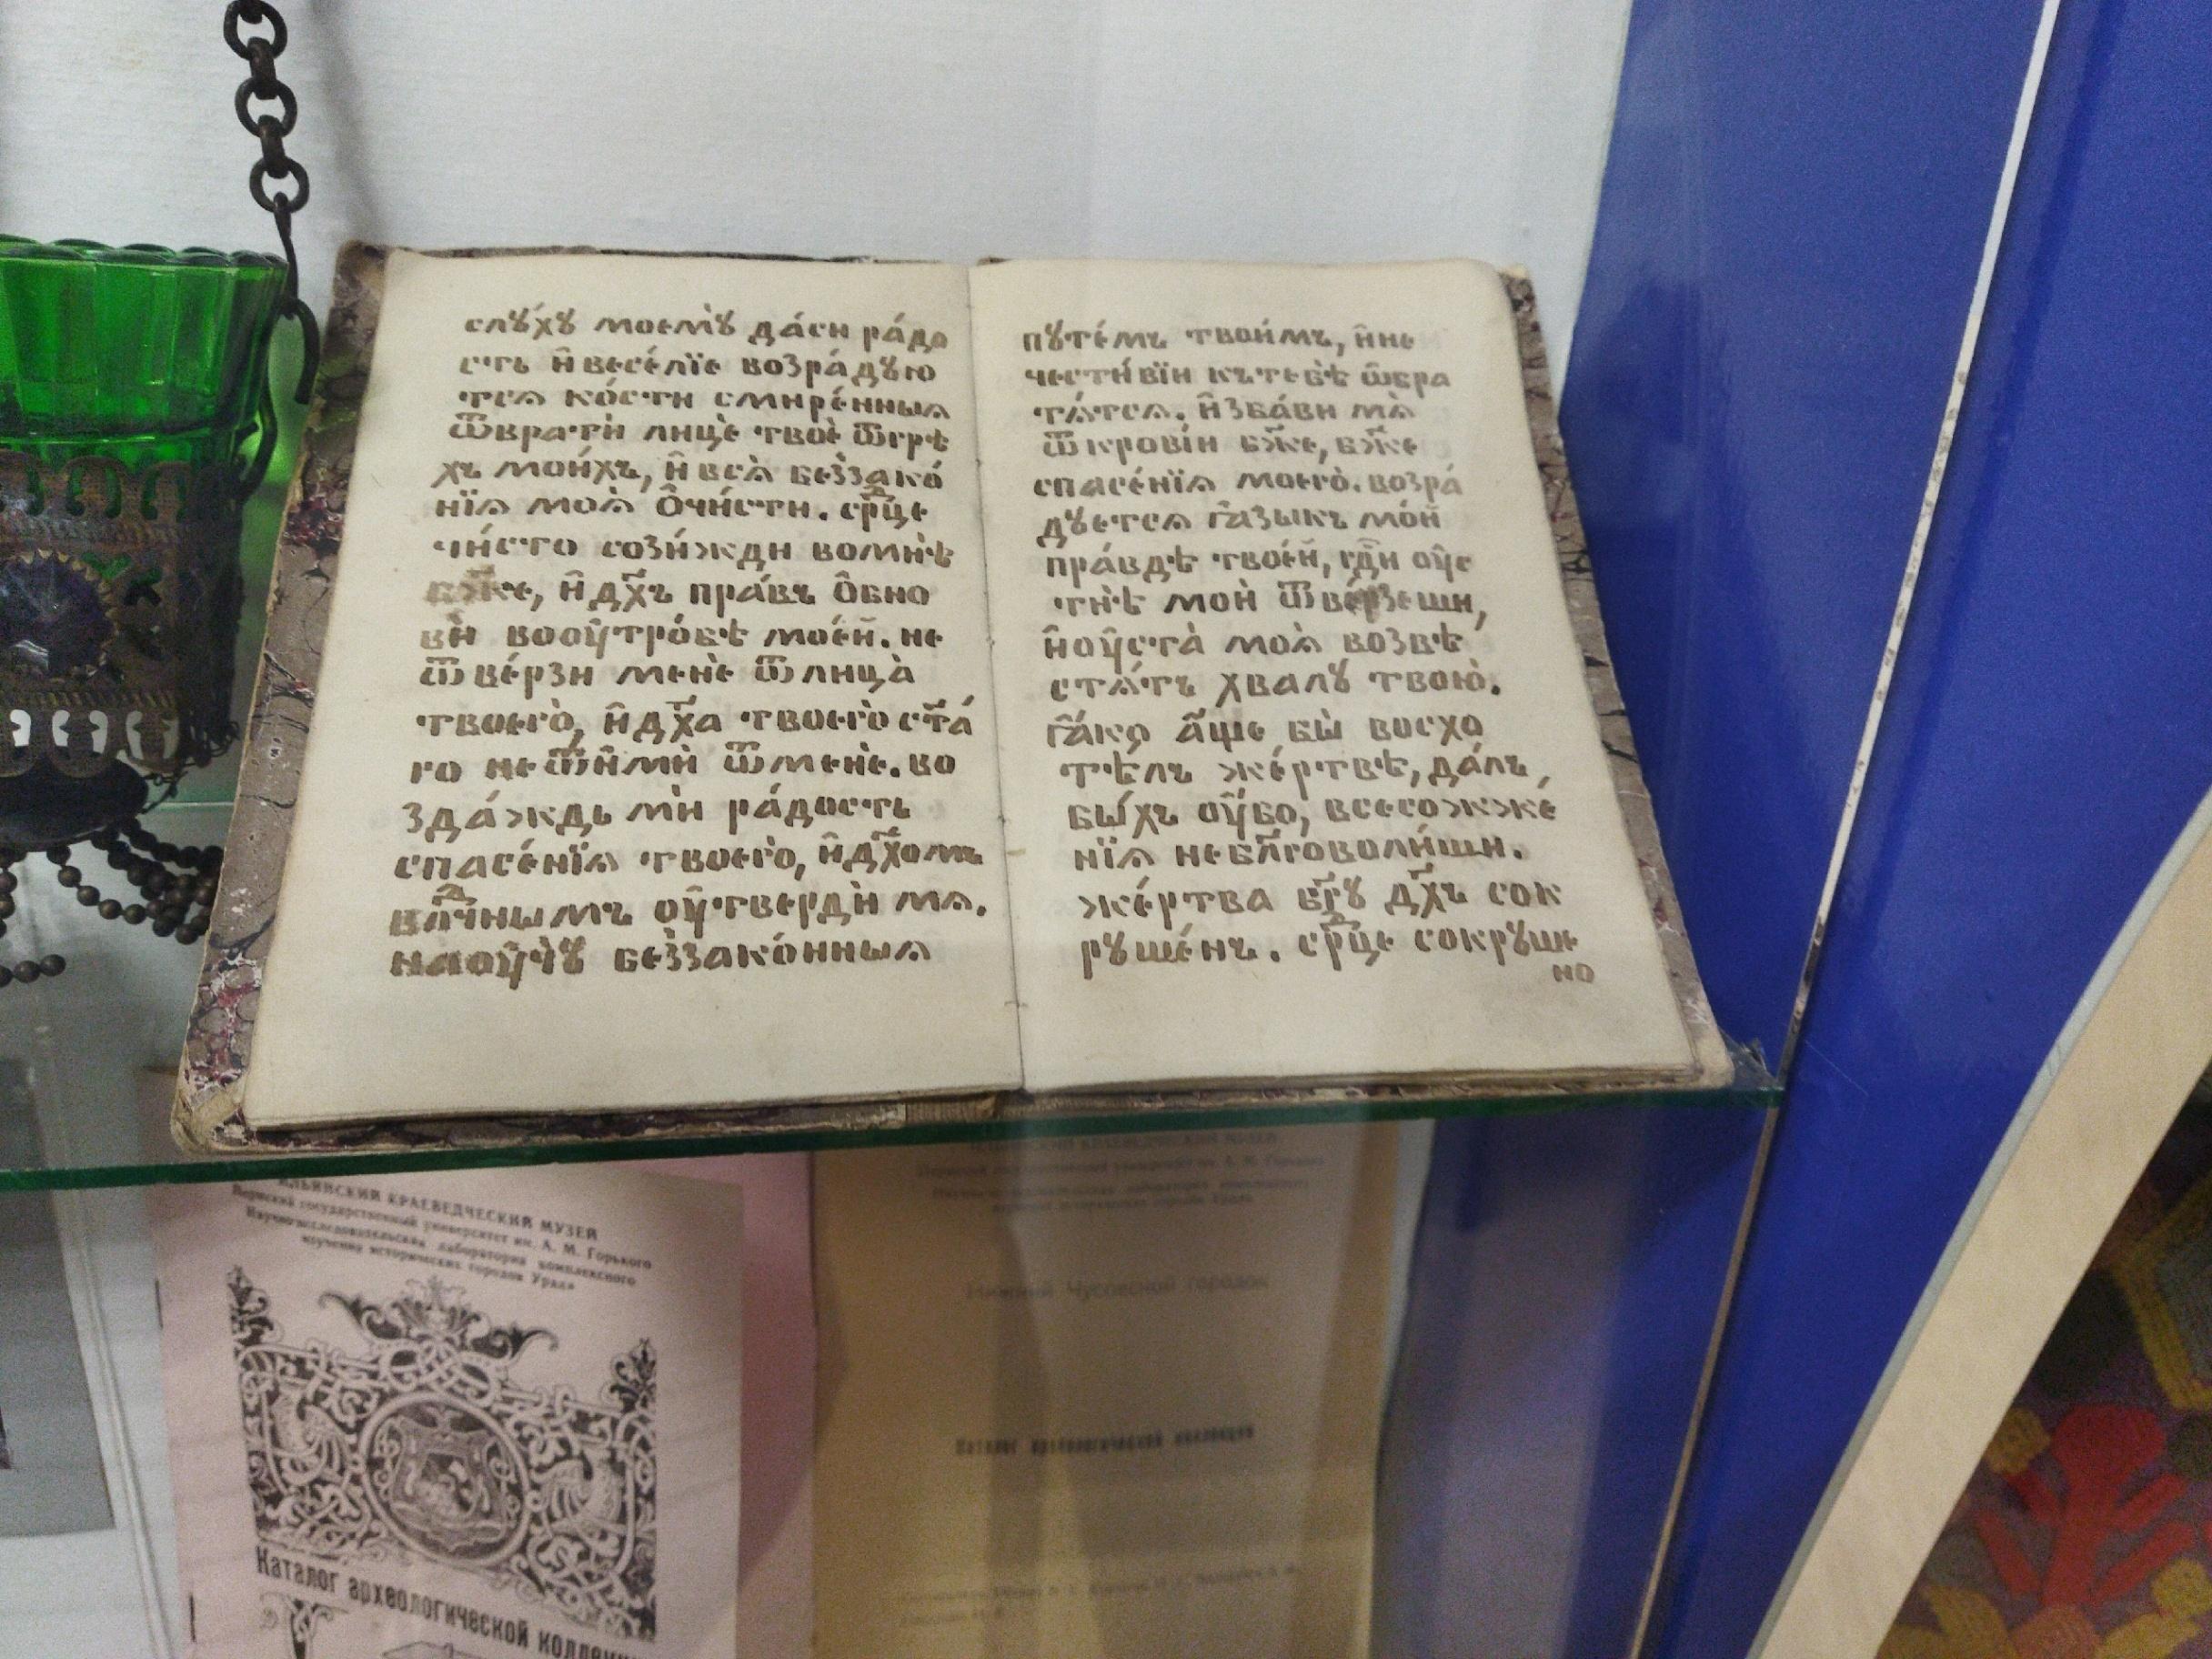 слꙋ́хꙋ моемꙋ̀ да́си ра́до
сть и҆ весе́лїе возра́дꙋю
тсѧ ко́сти смире́нныѧ
ѿвратѝ лицѐ твоѐ ѿ грѣ
хъ мои́хъ, и҆ всѧ̀ беззако́
нїѧ моѧ̀ ѻ҆чи́сти. срⷣце
чи́сто сози́жди во мнѣ̀
бж҃е, и҆ дх҃ъ пра́въ ѻ҆бно
вѝ во оу҆тро́бѣ мое́й. не
ѿве́рзи менѐ ѿ лица̀
твоего̀, и҆ дх҃а твоего̀ ст҃а́
го не ѿи҆мѝ ѿ менѐ. во
зда́ждь мѝ ра́дость
спасе́нїѧ твоего̀, и҆ дх҃омъ
влⷣчнымъ оу҆твердѝ мѧ.
наоу҆чꙋ̀ беззако́нныѧ
пꙋте́мъ твои́мъ, и҆ не
чести́вїи къ тебѣ̀ ѡ҆бра
тѧ́тсѧ. и҆зба́ви мѧ̀
ѿ крові́и бж҃е, бж҃е
спасе́нїѧ моего̀. возра́
дꙋетсѧ ꙗ҆зыкъ мо́й
пра́вдѣ твое́й, гдⷭ҇и оу҆с
тнѣ̀ моѝ ѿве́рзеши,
и҆ оу҆ста̀ моѧ̀ возвѣ
стѧ́тъ хвалꙋ̀ твою̀.
ꙗ҆́кѡ а҆́ще бы̀ восхо
тѣ́лъ же́ртвѣ, да́лъ
бы́хъ оу҆́бо, всесожже́
нїѧ не бл҃говоли́ши.
же́ртва бг҃ꙋ дх҃ъ сок
рꙋше́нъ. срⷣце сокрꙋше
но
ИЛЬИНСКИЙ КРАЕВЕДЧЕСКИЙ МУЗЕЙ
Пермский государственный университет им. А. М. Горького
Научно-исследовательская лаборатория комплексного
изучения исторических городов Урала
Каталог археологической
Нижний Чусовской городок
Каталог археологической коллекции